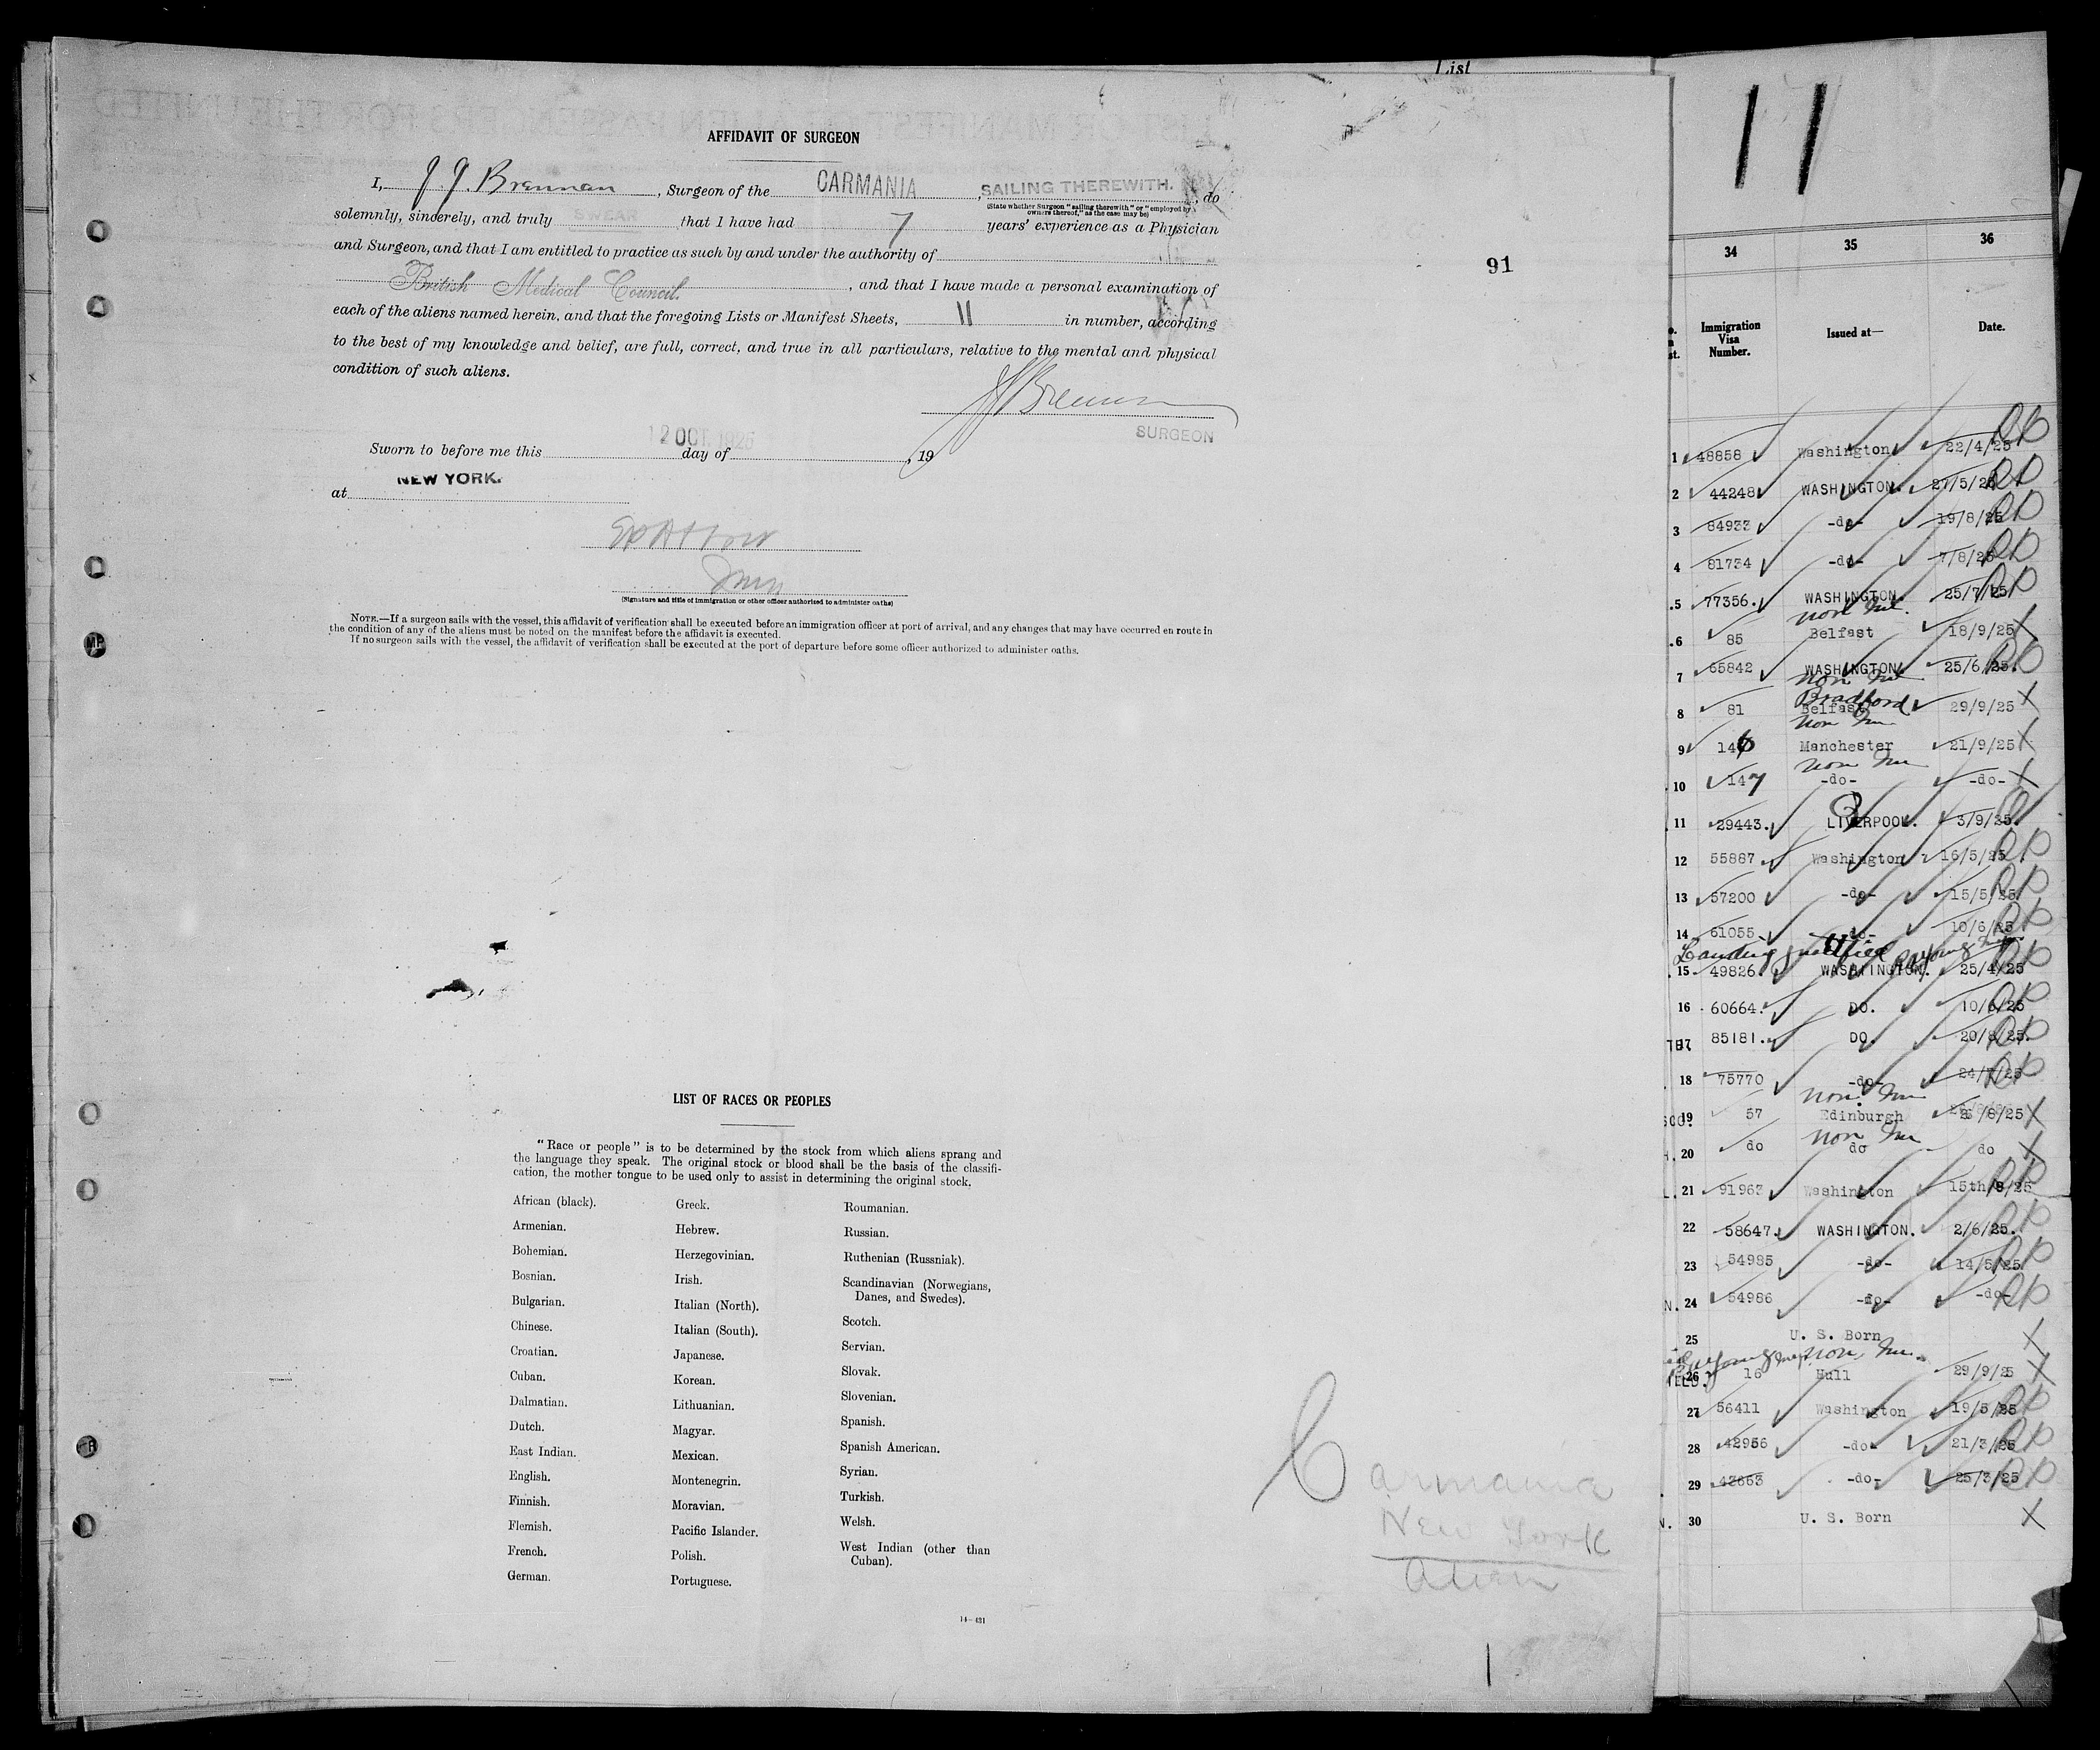 List
AFFIDAVIT OF SURGEON
I, J. J. Brennan, Surgeon of the CARMANIA, SAILING THEREWITH., do
(State whether Surgeon "sailing therewith" or "employed by
owners thereof," as the case may be)
solemnly, sincerely, and truly SWEAR that I have had 7 years' experience as a Physician
and Surgeon, and that I am entitled to practice as such by and under the authority of
British Medical Council., and that I have made a personal examination of
each of the aliens named herein, and that the foregoing Lists or Manifest Sheets, 11 in number, according
to the best of my knowledge and belief, are full, correct, and true in all particulars, relative to the mental and physical
condition of such aliens.
J J Brennan
SURGEON
Sworn to before me this 12 OCT. 1925 day of , 19
at NEW YORK.
(Signature and title of immigration or other officer authorized to administer oaths)
NOTE.—If a surgeon sails with the vessel, this affidavit of verification shall be executed before an immigration officer at port of arrival, and any changes that may have occurred en route in
the condition of any of the aliens must be noted on the manifest before the affidavit is executed.
If no surgeon sails with the vessel, the affidavit of verification shall be executed at the port of departure before some officer authorized to administer oaths.
91
LIST OF RACES OR PEOPLES
"Race or people" is to be determined by the stock from which aliens sprang and
the language they speak. The original stock or blood shall be the basis of the classifi-
cation, the mother tongue to be used only to assist in determining the original stock.
African (black).
Armenian.
Bohemian.
Bosnian.
Bulgarian.
Chinese.
Croatian.
Cuban.
Dalmatian.
Dutch.
East Indian.
English.
Finnish.
Flemish.
French.
German.
Greek.
Hebrew.
Herzegovinian.
Irish.
Italian (North).
Italian (South).
Japanese.
Korean.
Lithuanian.
Magyar.
Mexican.
Montenegrin.
Moravian.
Pacific Islander.
Polish.
Portuguese.
Roumanian.
Russian.
Ruthenian (Russniak).
Scandinavian (Norwegians,
Danes, and Swedes).
Scotch.
Servian.
Slovak.
Slovenian.
Spanish.
Spanish American.
Syrian.
Turkish.
Welsh.
West Indian (other than
Cuban).
14—431
Carmania
New York
Alien
11
34 35 36
Immigration
Visa
Number.
Issued at—
Date.
1 48858 Washington 22/4/25
2 44248 WASHINGTON. 27/5/25
3 84933 -do- 19/8/25
4 81734 -do- 7/8/25
5 77356. WASHINGTON. 25/7/25
non Im.
6 85 Belfast 18/9/25
7 65842 WASHINGTON 25/6/25.
non Im
Bradford
8 81 Belfast 29/9/25
non Im
9 146 Manchester 21/9/25
non Im
10 147 -do- -do-
11 29443. LIVERPOOL. 3/9/25.
12 55887 Washington 16/5/25
13 57200 -do- 15/5/25
14 61055 -do- 10/6/25
Landing verified
15 49826. WASHINGTON. 25/4/25
16 60664. DO. 10/6/25
17 85181. DO. 20/8/25.
18 75770 -do- 24/7/25
non Im
19 57 Edinburgh /8/25
non Im
20 do do do
21 91963 Washington 15th/8/25
22 58647. WASHINGTON. 2/6/25.
23 54985 -do- 14/5/25
24 54986 -do- -do-
25 U. S. Born
non Im.
26 16 Hull 29/9/25
27 56411 Washington 19/5/25
28 42956 -do- 21/3/25
29 43663 -do- 25/3/25
30 U. S. Born